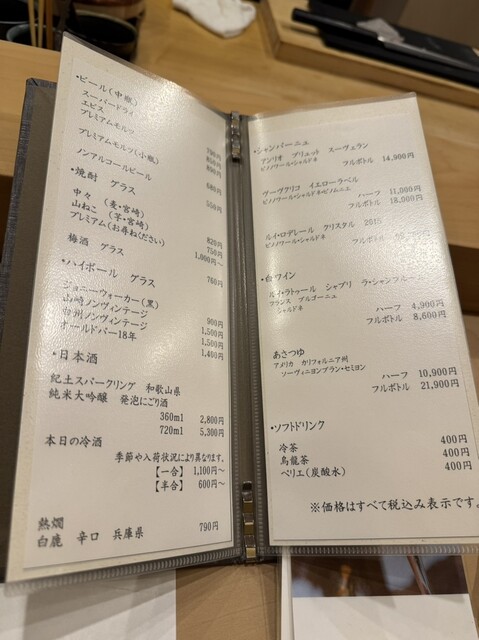 ・ビール（中瓶）
スーパードライ
エビス
プレミアムモルツ
プレミアムモルツ（小瓶）
ノンアルコールビール
790円
850円
890円
680円
550円
・焼酎　グラス
中々　（麦・宮崎）
山ねこ　（芋・宮崎）
プレミアム（お尋ねください）
820円
750円
1,000円～
梅酒　グラス
760円
・ハイボール　グラス
ジョニーウォーカー（黒）
山崎ノンヴィンテージ
白州ノンヴィンテージ
オールドパー18年
900円
1,500円
1,500円
1,400円
・日本酒
紀土スパークリング　和歌山県
純米大吟醸　発泡にごり酒
360ml　2,800円
720ml　5,300円
本日の冷酒
季節や入荷状況により異なります。
【一合】　1,100円～
【半合】　600円～
熱燗
白鹿　辛口　兵庫県　790円
・シャンパーニュ
アンリオ　ブリュット　スーヴェラン
ピノノワール・シャルドネ
フルボトル　14,900円
ヴーヴクリコ　イエローラベル
ピノノワール・シャルドネ・ピノムニエ
ハーフ　11,000円
フルボトル　18,000円
ルイ・ロデレール　クリスタル　2015
ピノノワール・シャルドネ
フルボトル
・白ワイン
ルイ・ラトゥール　シャブリ　ラ・シャンフルー
フランス　ブルゴーニュ
シャルドネ
ハーフ　4,900円
フルボトル　8,600円
あさつゆ
アメリカ　カリフォルニア州
ソーヴィニヨンブラン・セミヨン
ハーフ　10,900円
フルボトル　21,900円
・ソフトドリンク
冷茶　400円
烏龍茶　400円
ペリエ（炭酸水）　400円
※価格はすべて税込み表示です。